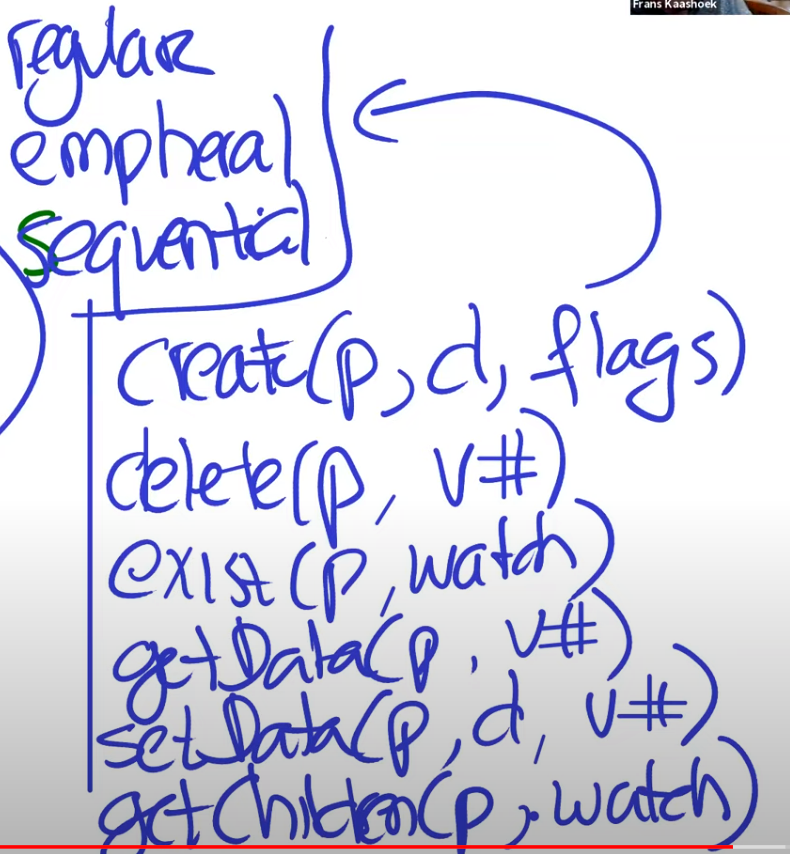 Frans Kaashoek
regular
empheral
sequential
create(p, d, flags)
delete(p, v#)
exist(p, watch)
getData(p, v#)
setData(p, d, v#)
getChildren(p, watch)